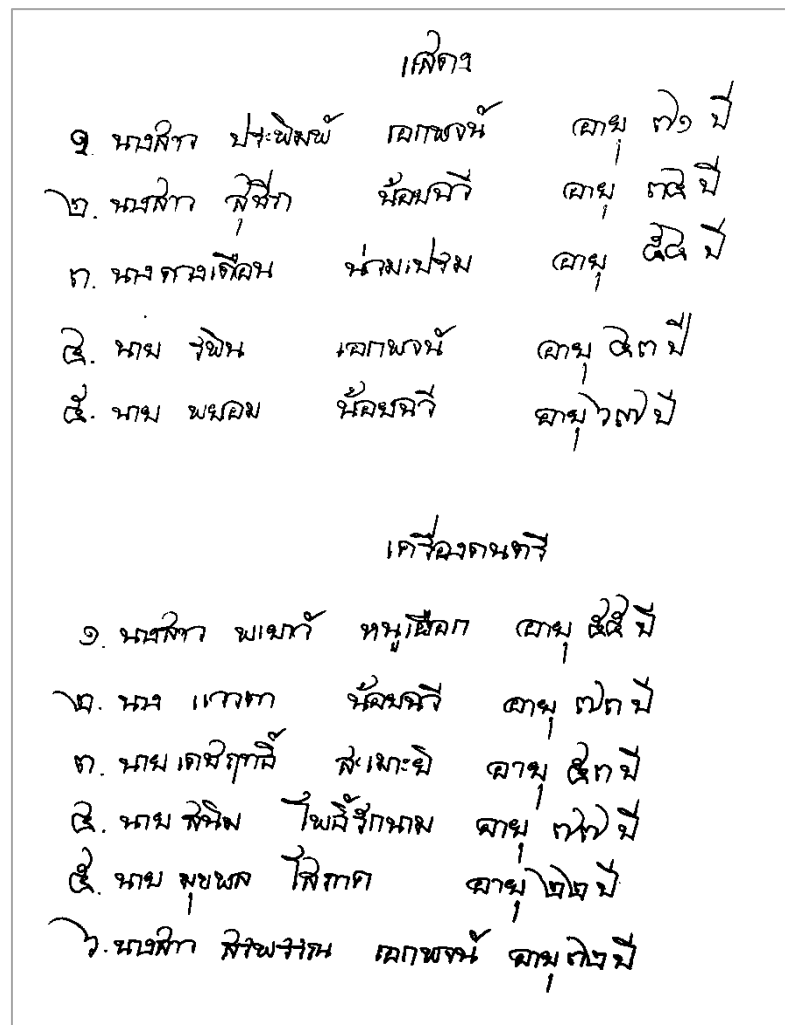 แสดง
๑. นางสาว ประพิมพ์ เอกพจน์ อายุ ๗๑ ปี
๒. นางสาว สุชีรา น้อยฉวี อายุ ๓๕ ปี
๓. นางดวงเดือน น่วมเปรม อายุ ๕๔ ปี
๔. นาย รพิน เอกพจน์ อายุ ๔๓ ปี
๕. นาย พยอม น้อยฉวี อายุ ๖๗ ปี
เครื่องดนตรี
๑. นางสาว พเยาว์ หนูเผือก อายุ ๕๕ ปี
๒. นาง แววตา น้อยฉวี อายุ ๗๓ ปี
๓. นาย เดชฤทธิ์ สะเมาะยิ อายุ ๕๓ ปี
๔. นาย สนิม โพธิ์รักนาม อายุ ๗๗ ปี
๕. นาย มุขพล โสภาค อายุ ๒๒ ปี
๖. นางสาว สรพรรณ เอกพจน์ อายุ ๗๒ ปี